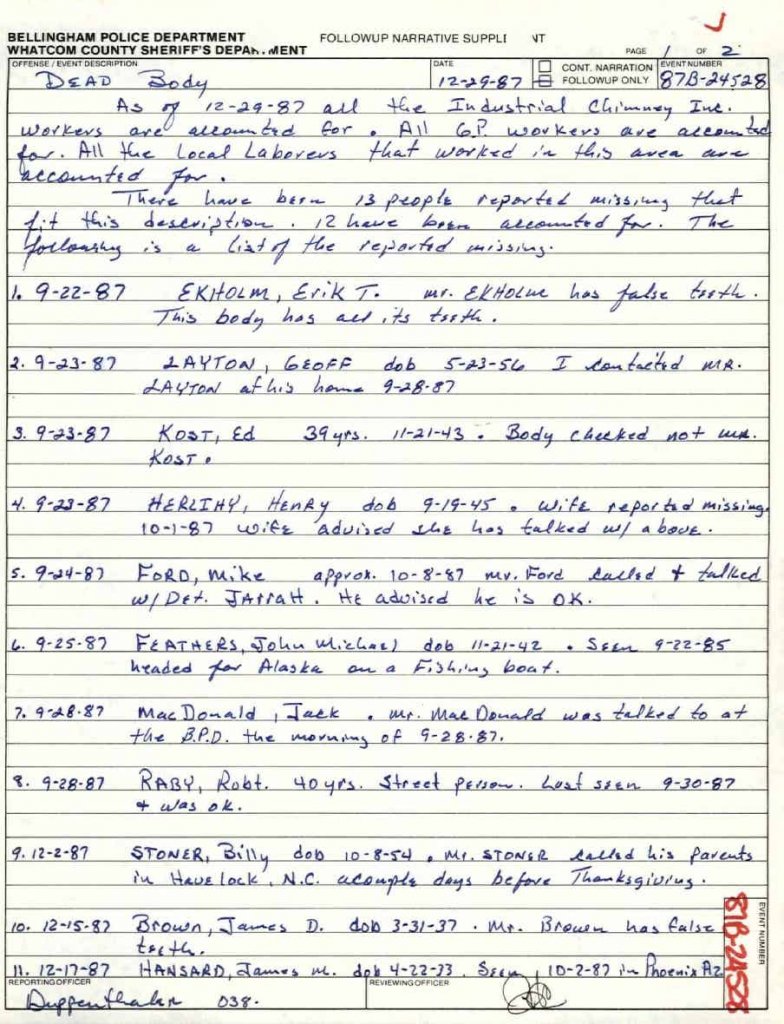 BELLINGHAM POLICE DEPARTMENT
WHATCOM COUNTY SHERIFF'S DEPARTMENT
FOLLOWUP NARRATIVE SUPPL NT
PAGE 1 OF 2
OFFENSE / EVENT DESCRIPTION
DATE
CONT. NARRATION
FOLLOWUP ONLY
EVENT NUMBER
DEAD Body
12-29-87
87B-24528
As of 12-29-87 all the Industrial Chimney Inc.
workers are accounted for. All G.P. workers are accounted
for. All the Local Laborers that worked in this area are
accounted for.
There have been 13 people reported missing that
fit this description. 12 have been accounted for. The
following is a list of the reported missing.
1. 9-22-87 EKHOLM, Erik T. Mr. EKHOLM has false teeth.
This body has all its teeth.
2. 9-23-87 LAYTON, GEOFF dob 5-23-56 I contacted MR.
LAYTON at his home 9-28-87
3. 9-23-87 KOST, Ed 39 yrs. 11-21-43. Body checked not Mr.
KOST.
4. 9-23-87 HERLIHY, HENRY dob 9-19-45. Wife reported missing.
10-1-87 wife advised she has talked w/ above.
5. 9-24-87 FORD, Mike approx. 10-8-87 Mr. Ford called & talked
w/ Det. JARRATT. He advised he is OK.
6. 9-25-87 FEATHERS, John Michael dob 11-21-42. Seen 9-22-85
headed for Alaska on a Fishing boat.
7. 9-28-87 MacDonald, Jack. Mr. MacDonald was talked to at
the B.P.D. the morning of 9-28-87.
8. 9-28-87 RABY, Robt. 40 yrs. Street person. Last seen 9-30-87
& was ok.
9. 12-2-87 STONER, Billy dob 10-8-54. Mr. STONER called his parents
in Havelock, N.C. a couple days before Thanksgiving.
10. 12-15-87 Brown, James D. dob 3-31-37. Mr. Brown has false
teeth.
11. 12-17-87 HANSARD, James M. dob 4-22-33. Seen 10-2-87 in Phoenix AZ
REPORTING OFFICER
REVIEWING OFFICER
038.
EVENT NUMBER